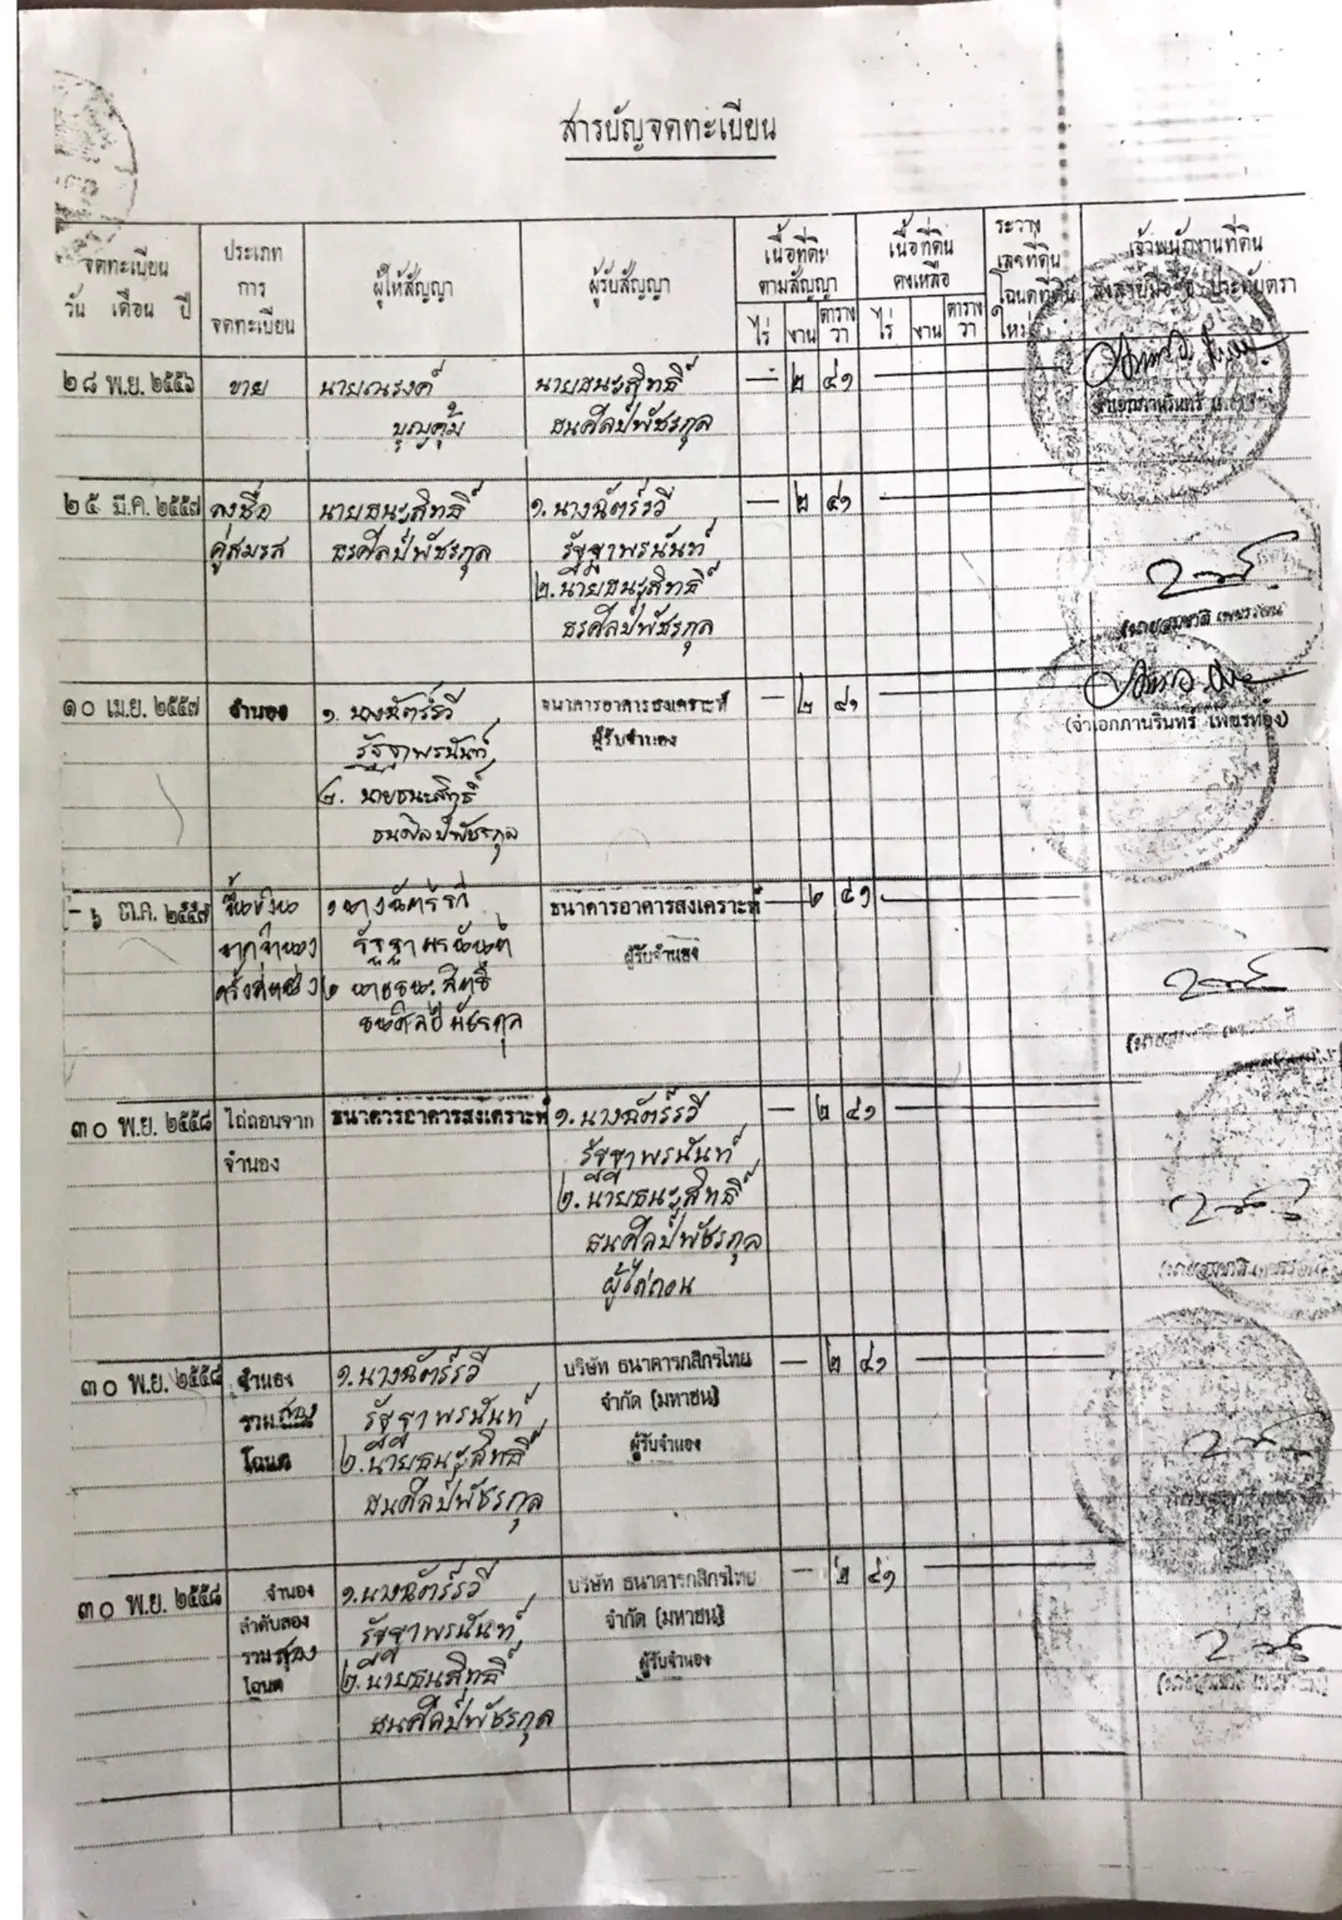 สารบัญจดทะเบียน
จดทะเบียน
วัน เดือน ปี
ประเภท
การ
จดทะเบียน
ผู้ให้สัญญา
ผู้รับสัญญา
เนื้อที่ดิน
ตามสัญญา
ไร่ งาน ตาราง
วา
เนื้อที่ดิน
คงเหลือ
ไร่ งาน ตาราง
วา
ระวาง
เลขที่ดิน
โฉนดที่ดิน
ใหม่
เจ้าพนักงานที่ดิน
ลงลายมือชื่อ ประทับตรา
๒๘ พ.ย. ๒๕๕๖ ขาย นายณรงค์ นายธนะสิทธิ์ — ๒ ๔๑
บุญคุ้ม ธนศิลป์พัชรกุล
๒๕ มี.ค. ๒๕๕๗ ลงชื่อ นายธนะสิทธิ์ ๑. นางฉัตร์รวี — ๒ ๔๑
คู่สมรส ธรศีลป์พัชรกุล รัฐฐาพรนันท์
๒. นายธนะสิทธิ์
ธรศีลป์พัชรกุล
(นายสมชาติ เพชรรัตน์
๑๐ เม.ย. ๒๕๕๗ จำนอง ๑. นางฉัตร์รวี ธนาคารอาคารสงเคราะห์ — ๒ ๔๑
(จ่าเอกภานรินทร์ เพ็ชรทอง)
รัฐฐาพรนันท์ ผู้รับจำนอง
๒. นายธนะสิทธิ์
ธนศิลป์พัชรกุล
- ๖ ต.ค. ๒๕๕๗ ขึ้นเงิน ๑ นางฉัตร์รวี ธนาคารอาคารสงเคราะห์ — ๒ ๔๑
จากจำนอง รัฐฐาพรนันท์ ผู้รับจำนอง
ครั้งที่หนึ่ง ๒ นายธนะสิทธิ์
ธนศิลป์พัชรกุล
๓๐ พ.ย. ๒๕๕๘ ไถ่ถอนจาก ธนาคารอาคารสงเคราะห์ ๑. นางฉัตร์รวี — ๒ ๔๑
จำนอง รัฐฐาพรนันท์
๒. นายธนะสิทธิ์
ธนศีลป์พัชรกุล
ผู้ไถ่ถอน
๓๐ พ.ย. ๒๕๕๘ จำนอง ๑. นางฉัตร์รวี บริษัท ธนาคารกสิกรไทย — ๒ ๔๑
รวมสอง รัฐฐาพรนันท์ จำกัด (มหาชน)
โฉนด ๒. นายธนะสิทธิ์ ผู้รับจำนอง
ธนศีลป์พัชรกุล
๓๐ พ.ย. ๒๕๕๘ จำนอง ๑. นางฉัตร์รวี บริษัท ธนาคารกสิกรไทย — ๒ ๔๑
ลำดับสอง รัฐฐาพรนันท์ จำกัด (มหาชน)
รวมสอง ๒. นายธนสิทธิ์ ผู้รับจำนอง
โฉนด ธนศีลป์พัชรกุล